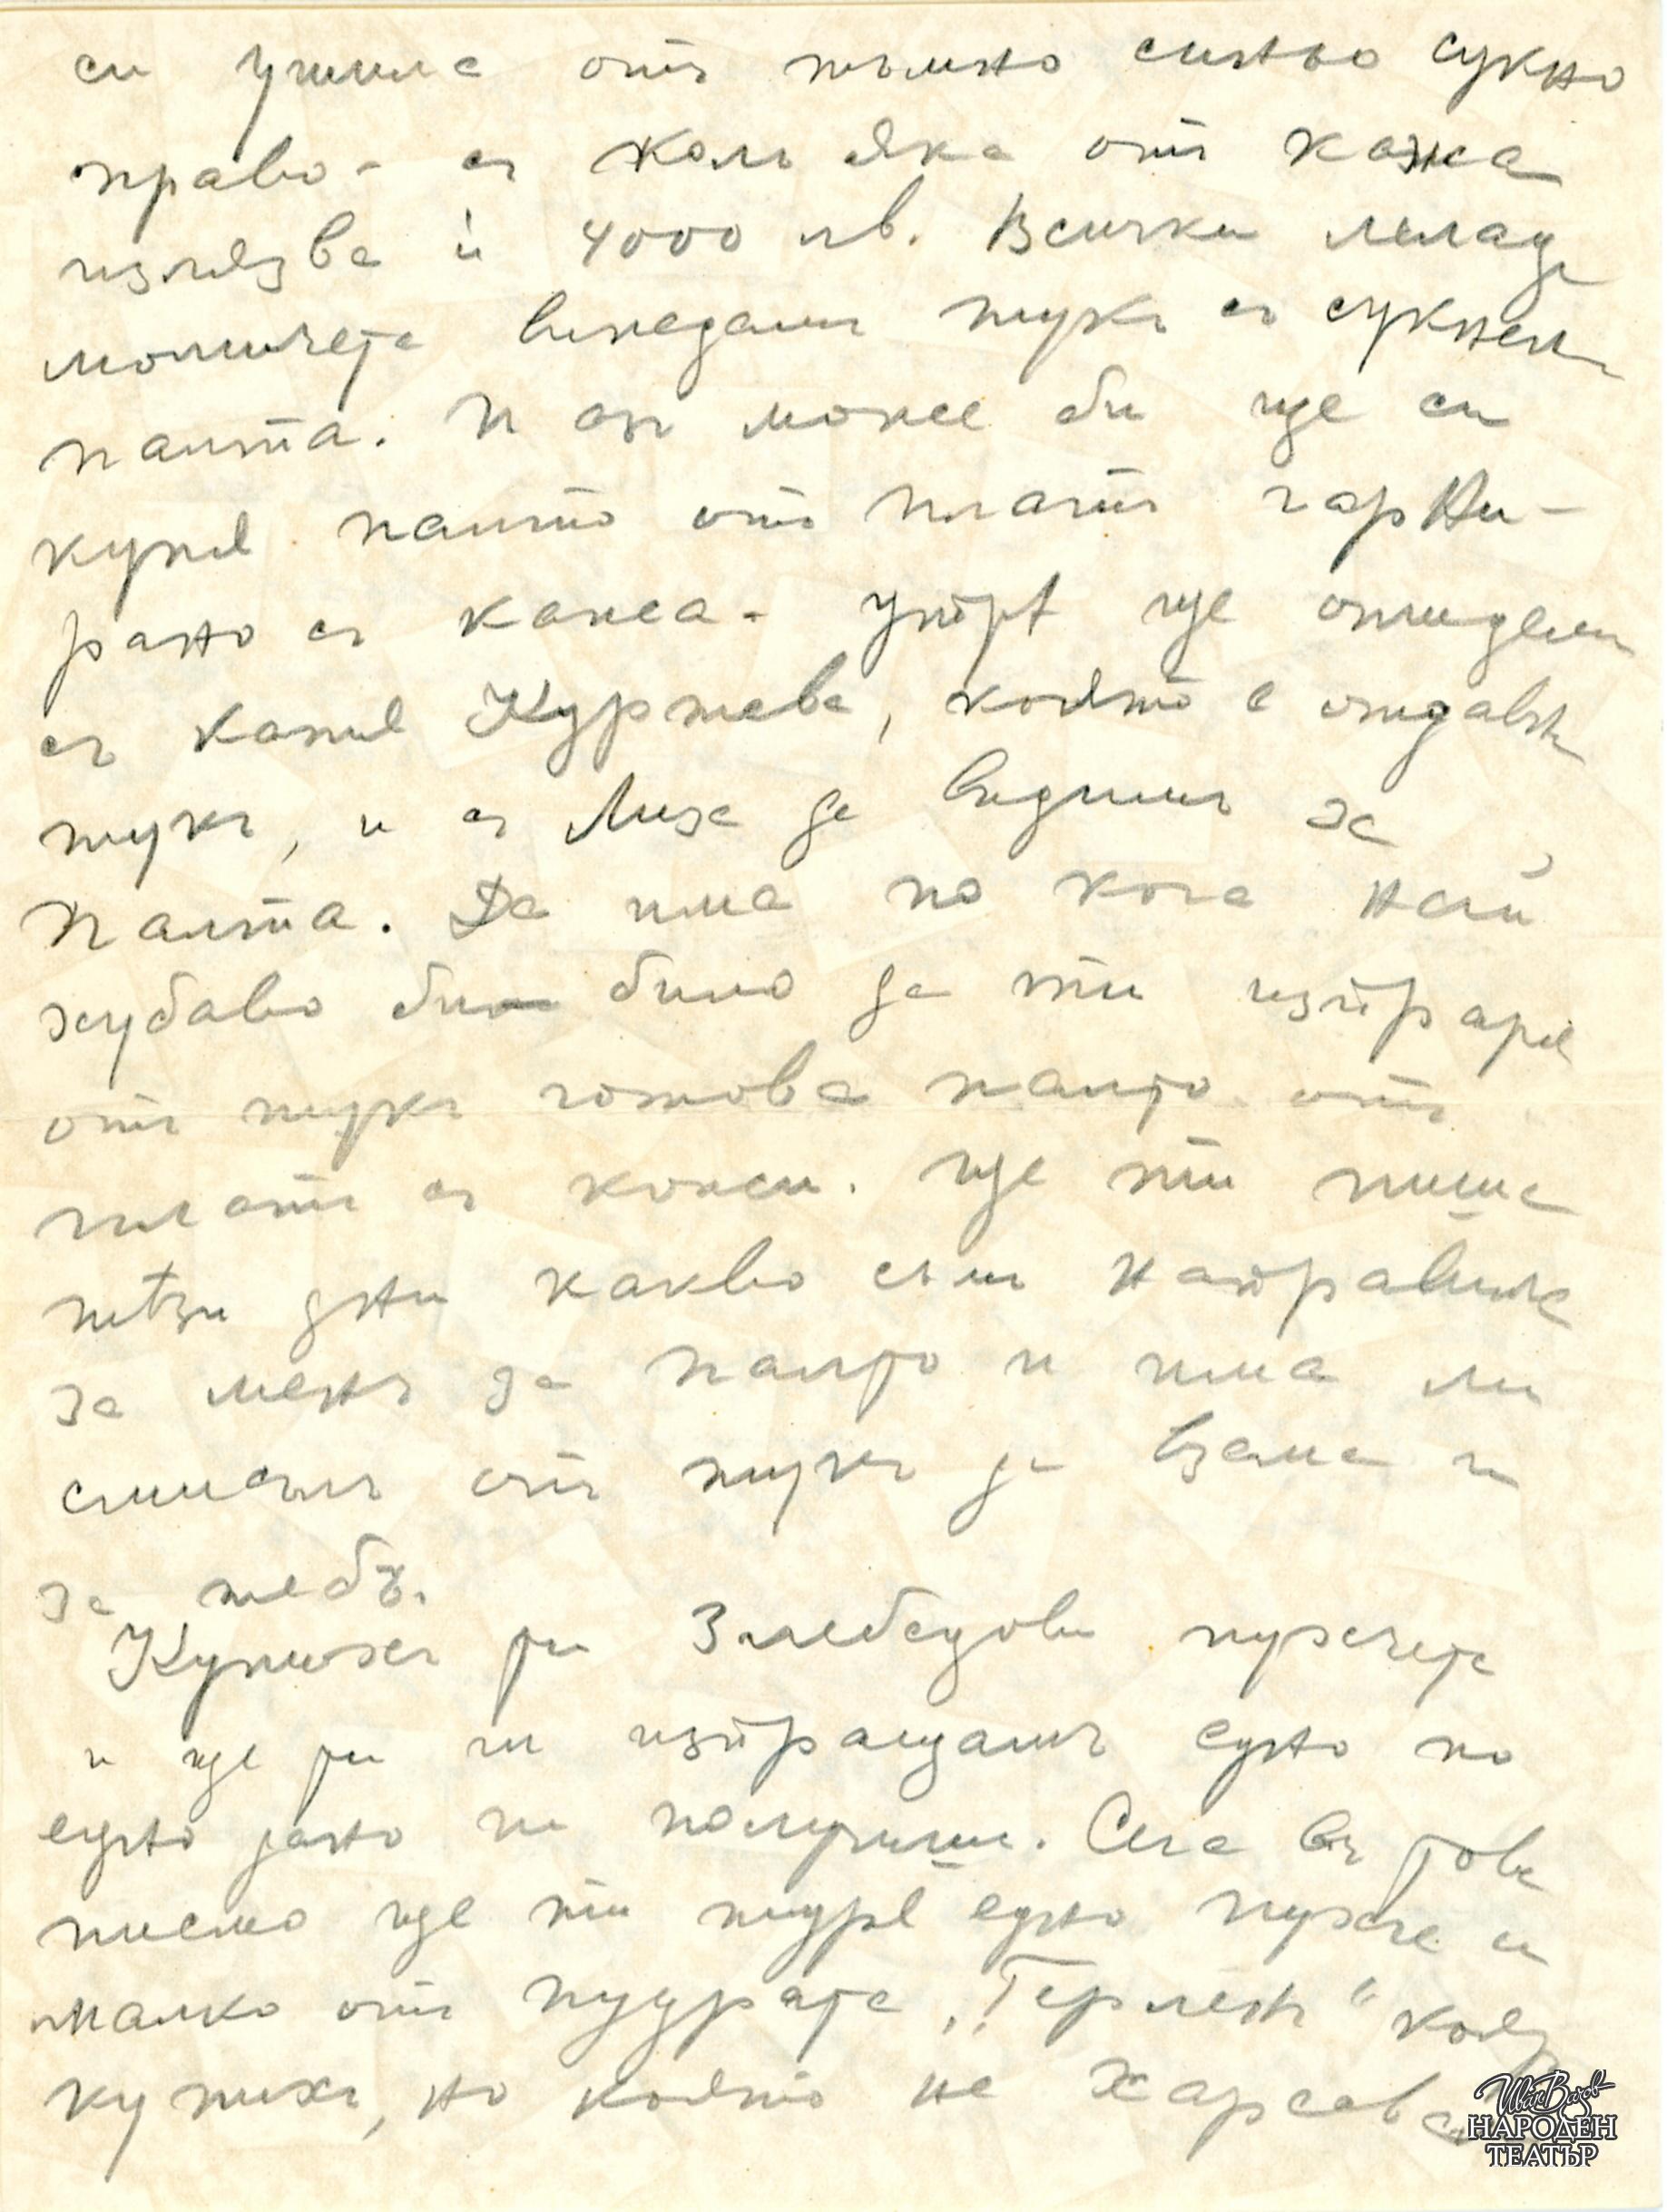 си ушила отъ тъмно синьо сукно
право - съ кол яка отъ кожа
излязва ѝ 4000 лв. Всички млади
момичета виждамъ тукъ съ сукнени
палта. И азъ може би ще си
купя палто отъ платъ гарни-
рано съ кожа - Утрѣ ще отидемъ
съ Капия Куртева, която е отдавна
тукъ, и съ Лиза да видимъ за
палта. Да има по кого най
хубаво би било да ти изпратя
отъ тукъ готово палто отъ
платъ съ кожи. Ще ти пиша
тѣзи дни какво съм направила
за менъ за палто и има ли
смисълъ отъ тукъ да взема и
за тебъ.
Купихъ ти 3 лебедови пухчета
и ще ти ги изпращамъ едно по
едно дано ги получишъ. Сега въ това
писмо ще ти туря едно пухче и
малко отъ пудрата „Герленъ“ коя
купихъ, но която не харесвамъ
Иван Вазов
НАРОДЕН
ТЕАТЪР